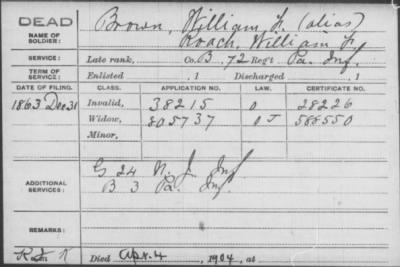 DEAD
NAME OF SOLDIER: Brown, William H. (alias)
Roach, William H.
SERVICE: Late rank, Co. B 72 Reg't Pa. Inf.
TERM OF SERVICE: Enlisted , 1 Discharged , 1
DATE OF FILING. CLASS. APPLICATION NO. LAW. CERTIFICATE NO.
1863 Dec 31 Invalid, 38215 O 28226
Widow, 805737 O J 588550
Minor,
ADDITIONAL SERVICES: G 24 N. J. Inf
B 3 Pa. Inf.
REMARKS:
Died Apr. 4, 1904, at